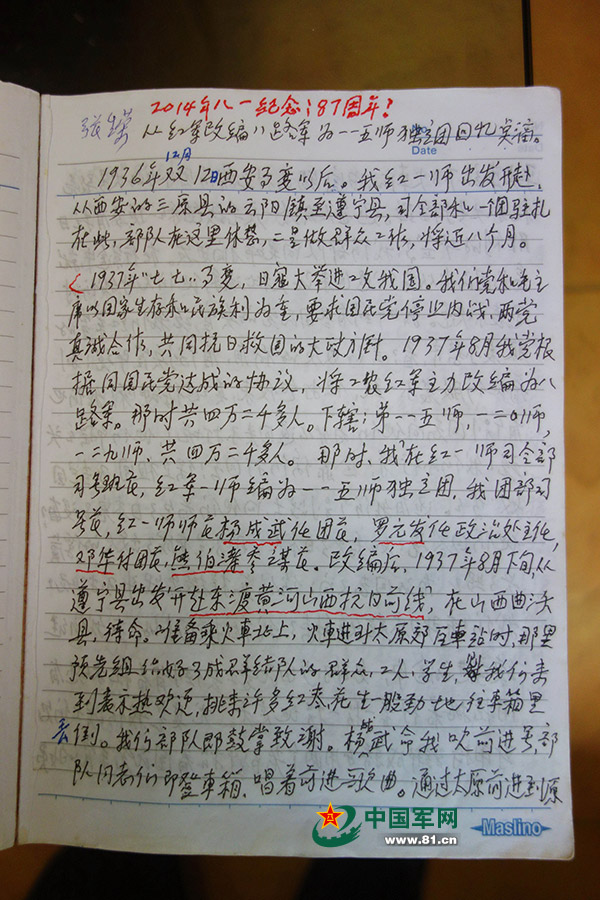 2014年八一纪念:87周年?
从红军改编八路军为一一五师独立团回忆实稿。
Date
12月
1936年双12日西安事变以后。我红一师出发开赴,
从西安的三原县的云阳镇至遵宁县,司令部和一个团驻扎
在此,部队在这里休整,二是做群众工作,将近八个月。
1937年"七七"事变,日寇大举进攻我国。我们党和毛主
席以国家生存和民族利为重,要求国民党停业内战,两党
真诚合作,共同抗日救国的大政方针。1937年8月我党根
据同国民党达成的协议,将工农红军主力改编为八
路军。那时共四万二千多人。下辖:第一一五师,一二0师,
一二九师、共四万二千多人。那时、我在红一师司令部
司号班长,红军一师编为一一五师独立团,我团部司
号长,红一师师长杨成武任团长,罗元发任政治处主任,
邓华付团长,熊伯涛参谋长。改编后,1937年8月下旬,从
遵宁县出发开赴东渡黄河山西抗日前线,在山西曲沃
县,待命。准备乘火车北上,火车进入太原郊区车站时,那里
预先组织好了成群结队的群众,工人,学生,对我们来
到表示热欢迎,挑来许多红枣花生一股劲地往车箱里
去倒。我们部队即鼓掌致谢。杨成武命我吹前进号,部
队同志们即登车箱、唱着前进歌曲。通过太原前进到源
中国军网
www.81.cn
Maslino